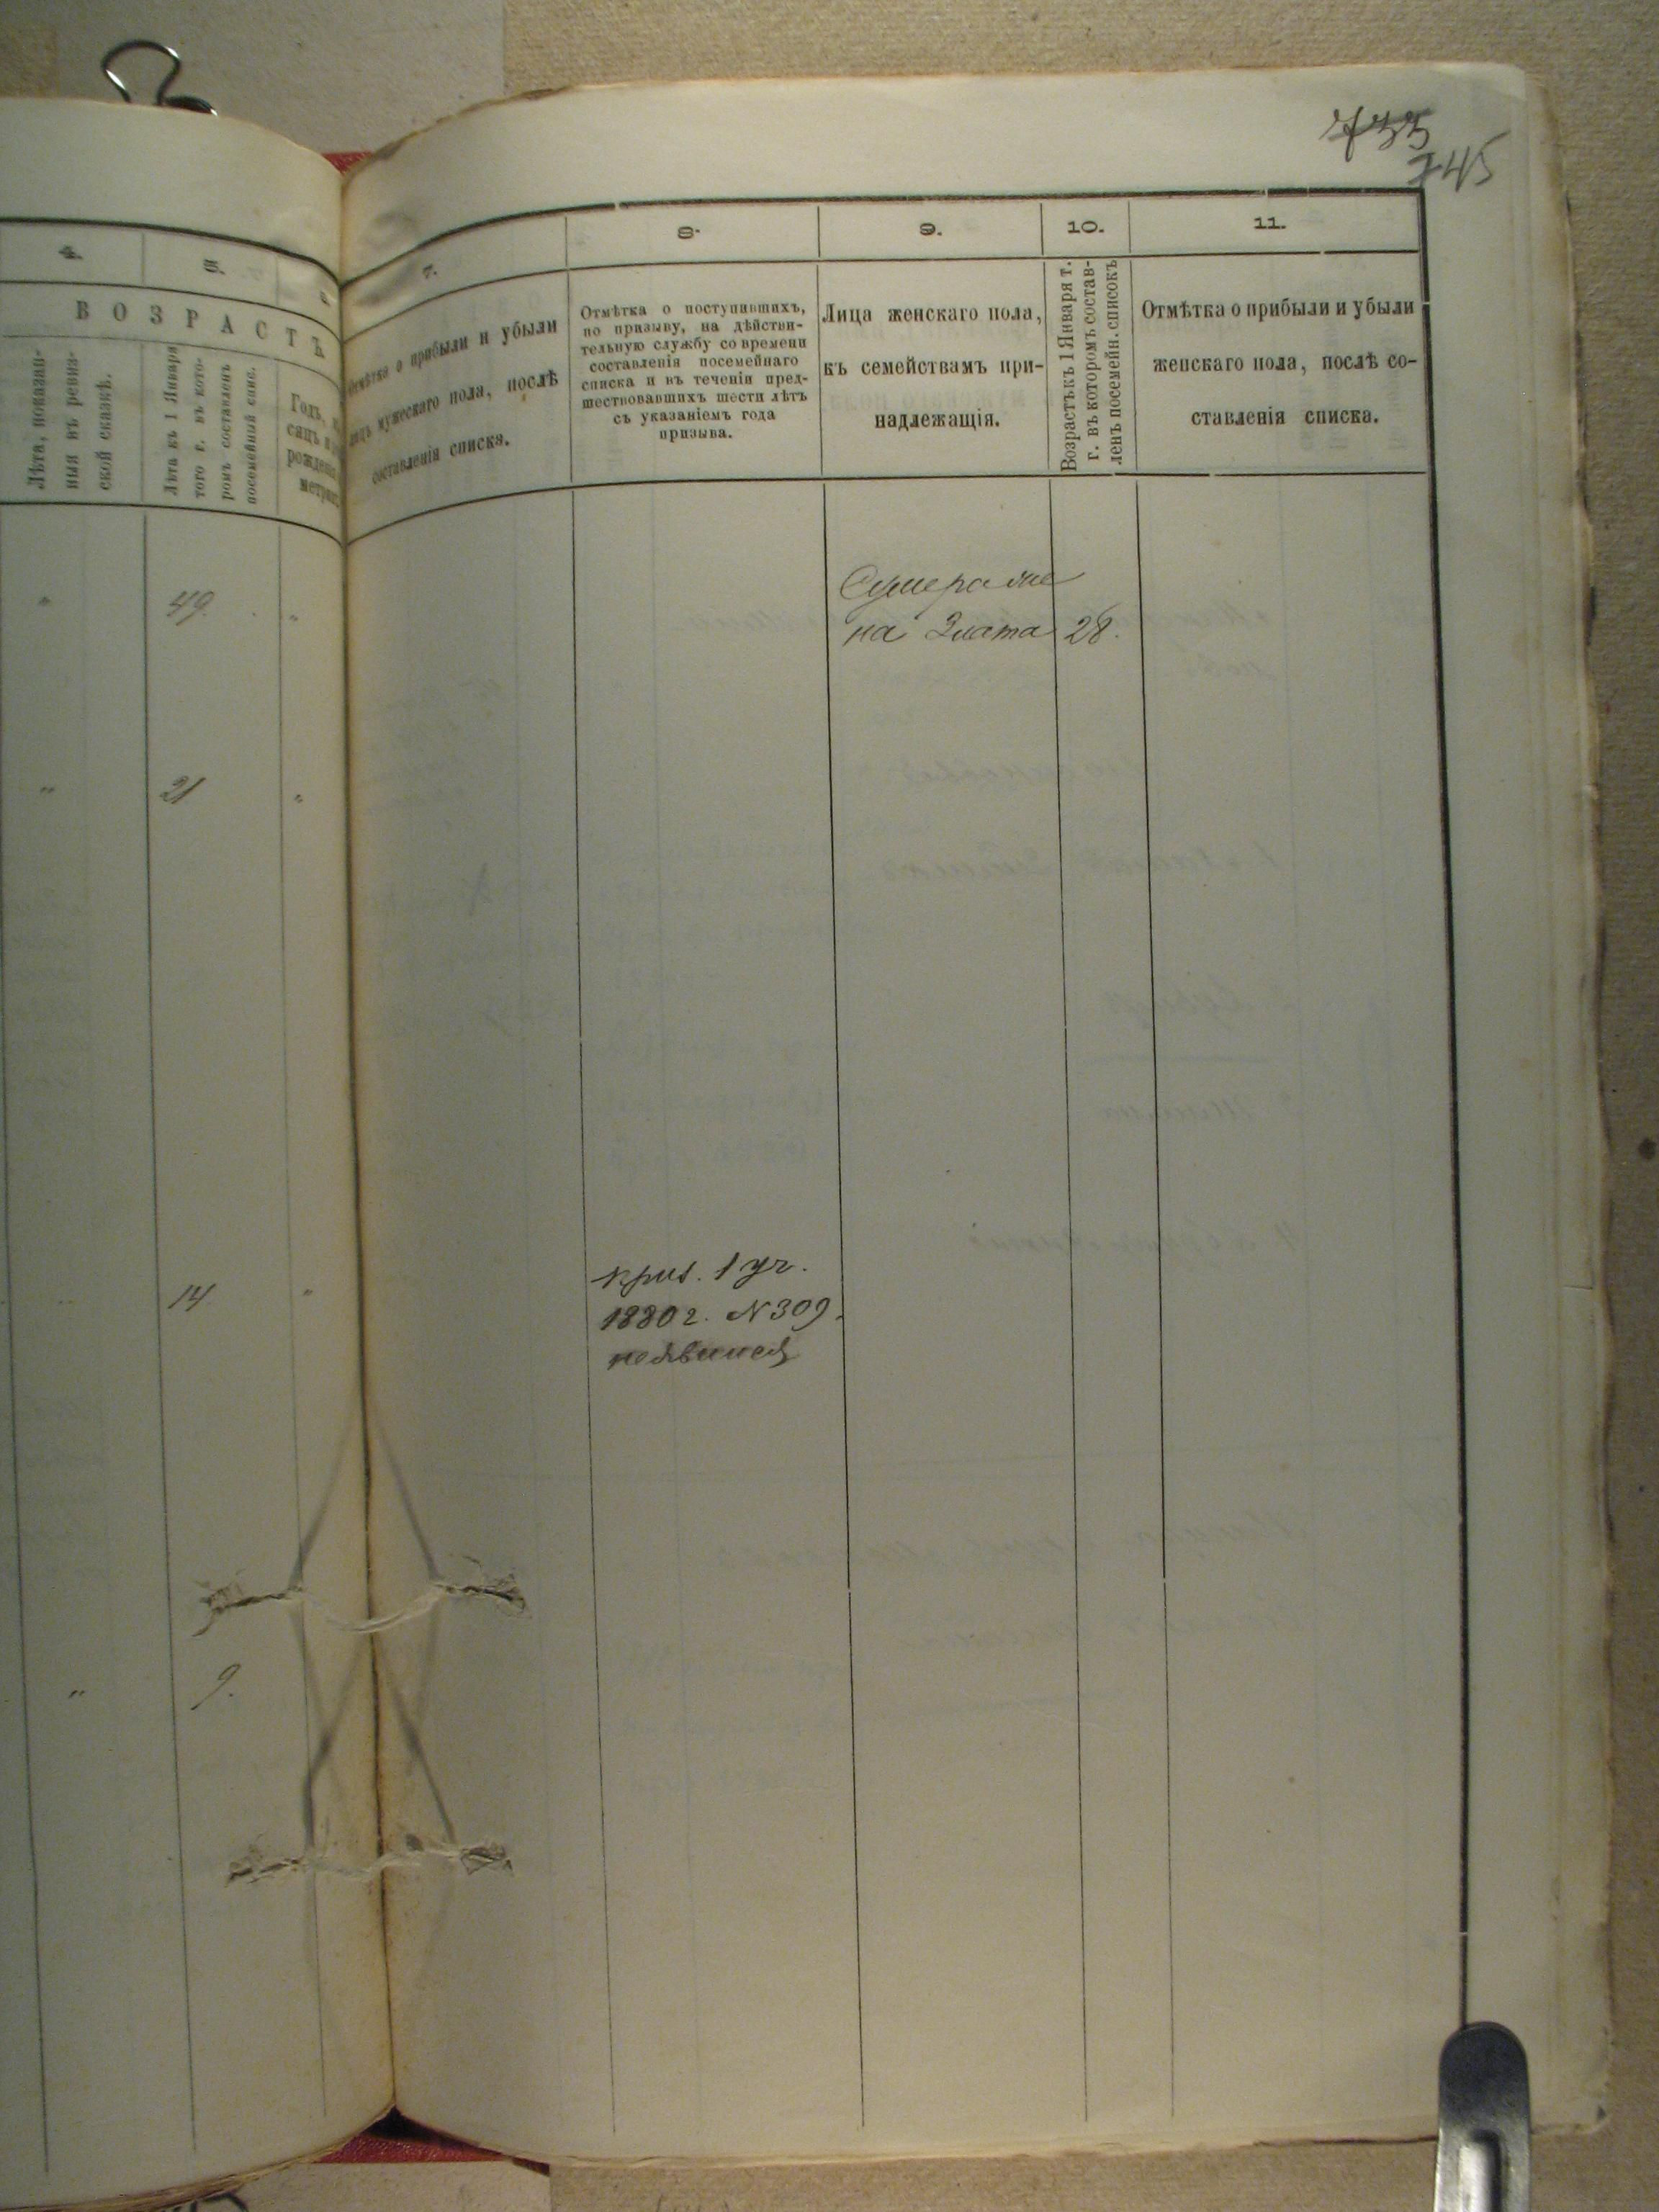 733
745
4.
5.
6.
ВОЗРАСТЪ
Лѣта, показан-
ныя въ ревиз-
ской сказкѣ.
Лѣта къ 1 Января
того г. въ кото-
ромъ составленъ
посемейный спис.
Годъ,
рожденія
7.
Отмѣтка о прибыли и убыли
лицъ мужескаго пола, послѣ
составленія списка.
8.
Отмѣтка о поступившихъ,
по призыву, на дѣйстви-
тельную службу со времени
составленія посемейнаго
списка и въ теченіи пред-
шествовавшихъ шести лѣтъ
съ указаніемъ года
призыва.
9.
Лица женскаго пола,
къ семействамъ при-
надлежащія.
10.
Возрастъ къ 1 Января т.
г. въ которомъ состав-
ленъ посемейн. списокъ
11.
Отмѣтка о прибыли и убыли
женскаго пола, послѣ со-
ставленія списка.
" 49. "
Сумера же
на Злата 28.
" 21 "
" 14 "
приз. 1 уч.
1880 г. N 309.
неявился
" 9.